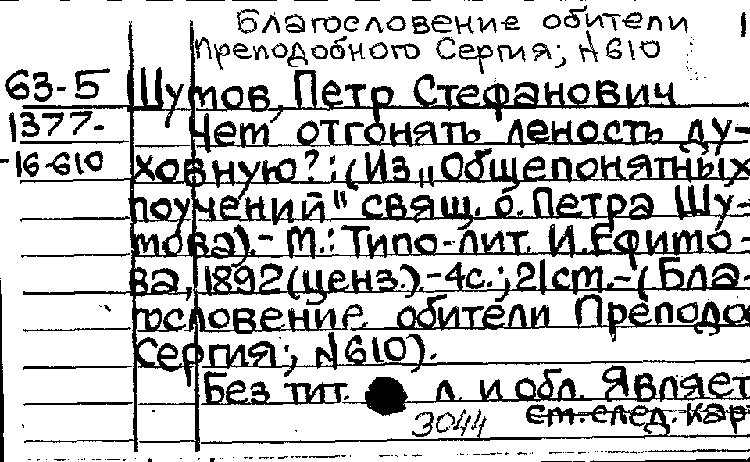 Благословение обители
Преподобного Сергия; N 610
63-5 Шутов, Петр Стефанович
1377- Чем отгонять леность ду-
-16-610 ховную?: (Из „Общепонятных
поучений" свящ. о. Петра Шу-
това).- М.: Типо-лит. И. Ефимо-
ва, 1892 (ценз.).-4с.; 21 см.-(Бла-
гословение обители Преподо
Сергия; N 610).
Без тит. л. и обл. Являет
3044 см. след. кар